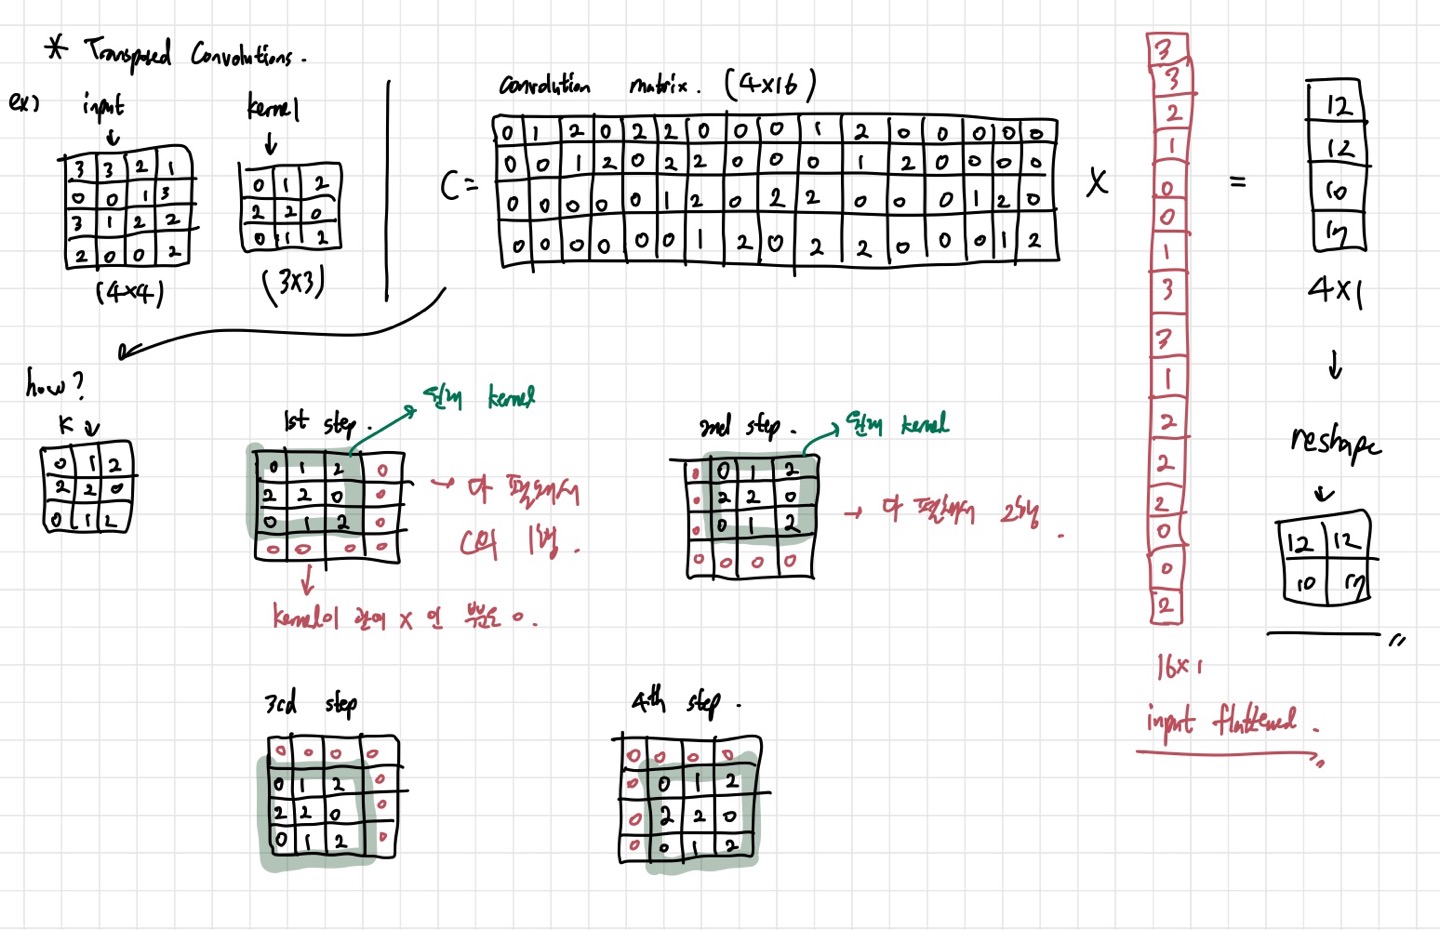 * Transposed Convolutions.
ex) input
3 3 2 1
0 0 1 3
3 1 2 2
2 0 0 2
(4×4)
kernel
0 1 2
2 2 0
0 1 2
(3×3)
convolution matrix. (4×16)
C=
0 1 2 0 2 2 0 0 0 1 2 0 0 0 0 0
0 0 1 2 0 2 2 0 0 0 1 2 0 0 0 0
0 0 0 0 0 1 2 0 2 2 0 0 0 1 2 0
0 0 0 0 0 0 1 2 0 2 2 0 0 0 1 2
×
3
3
2
1
0
0
1
3
3
1
2
2
2
0
0
2
16×1
input flattened.
=
12
12
10
17
4×1
reshape
12 12
10 17
how?
K
0 1 2
2 2 0
0 1 2
1st step.
원래 kernel
0 1 2 0
2 2 0 0
0 1 2 0
0 0 0 0
→ 다 펼쳐서
C의 1행.
kernel이 관여 X 인 부분은 0.
2nd step.
원래 kernel
0 0 1 2
0 2 2 0
0 0 1 2
0 0 0 0
→ 다 펼쳐서 2행.
3rd step
0 0 0 0
0 1 2 0
2 2 0 0
0 1 2 0
4th step.
0 0 0 0
0 0 1 2
0 2 2 0
0 0 1 2